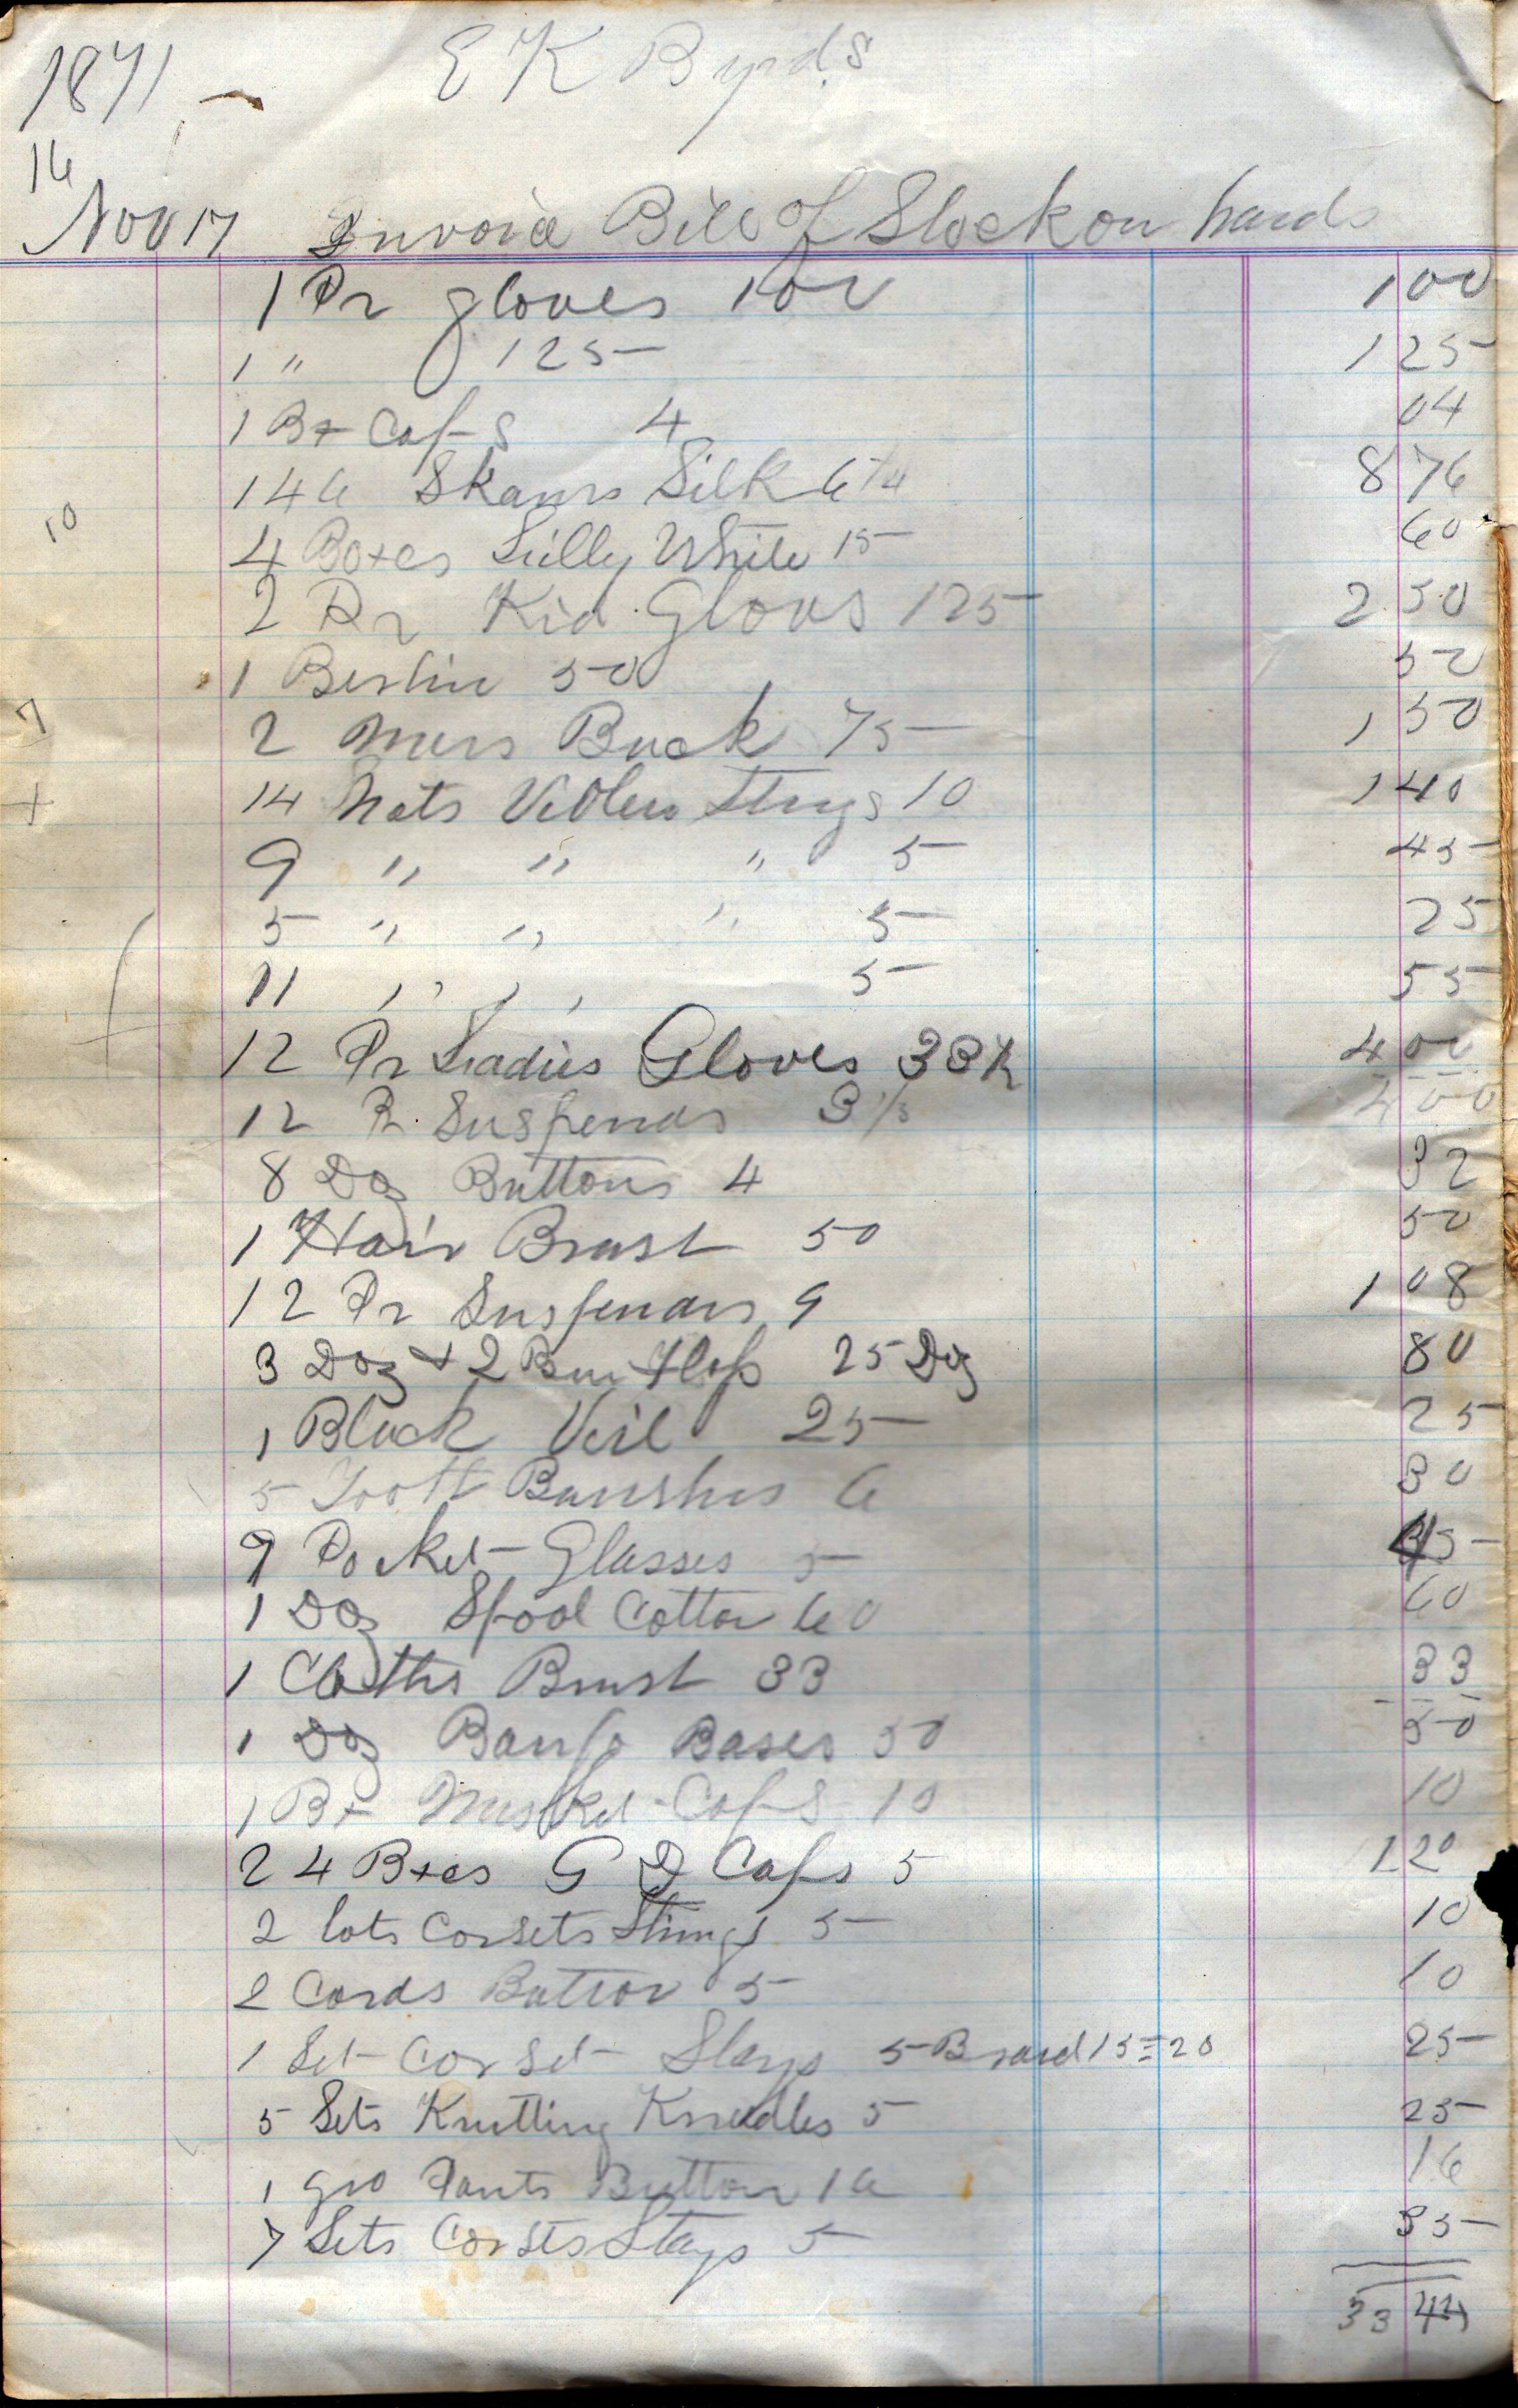 1871
E K Byrds
16
Nov 17 Invoice Bill of Stock on hands
1 Pr gloves 100 1 00
1 " 125 1 25
1 Bx Caps 4 04
146 Skains Silk 6 8 76
10
4 Boxes Lilly White 15 60
2 Pr Kid Gloves 125 2 50
1 Berlin 50 50
7
2 mens Buck 75 1 50
14 Nots Violen Strgs 10 1 40
9 " " " 5 45
5 " " " 5 25
11 " " 5 55
12 Pr Ladies Gloves 33 4 00
12 Pr Suspendrs 3 1/3 4 00
8 Doz Buttons 4 32
1 Hair Brush 50 50
12 Pr Suspendrs 9 1 08
3 Doz + 2 25 Doz 80
1 Black Veil 25 25
5 Tooth Burshes 6 30
9 Pocket Glasses 5 45
1 Doz Spool Cotton 60 60
1 Cloths Brush 33 33
1 Doz Banjo Bases 50 50
1 Bx Musket Caps 10 10
24 Bxes G D Caps 5 1 20
2 lots Corsets Strings 5 10
2 Cards Button 5 10
1 Set Corset Stays 5 Braid 15 = 20 25
5 Sets Knitting Kneedles 5 25
1 gro Pants Button 16 16
7 Sets Corsets Stays 5 35
33 44